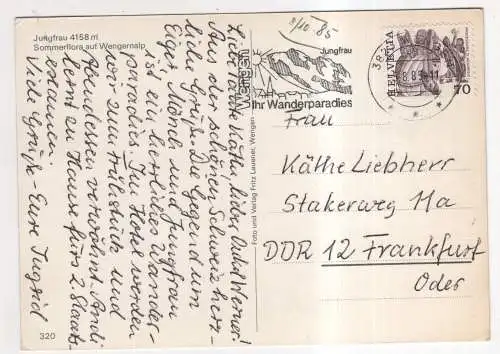 Jungfrau 4158 m
Sommerflora auf Wengernalp
8/10 85
Liebe Tante Käthe, lieber Onkel Werner!
Aus der schönen Schweiz herz-
liche Grüße. Die Gegend um
Eiger, Mönch und Jungfrau
ist ein herrliches Wander-
paradies. Im Hotel werden
wir zum Frühstück und
Abendessen verwöhnt. Andi
lernt zu Hause fürs 2. Staats-
examen.
Viele Grüße - Eure Ingrid
320
Foto und Verlag Fritz Lauener, Wengen
Wengen
Jungfrau
Ihr Wanderparadies
HELVETIA
70
Frau
Käthe Liebherr
Stakerweg 11a
DDR 12 Frankfurt
Oder